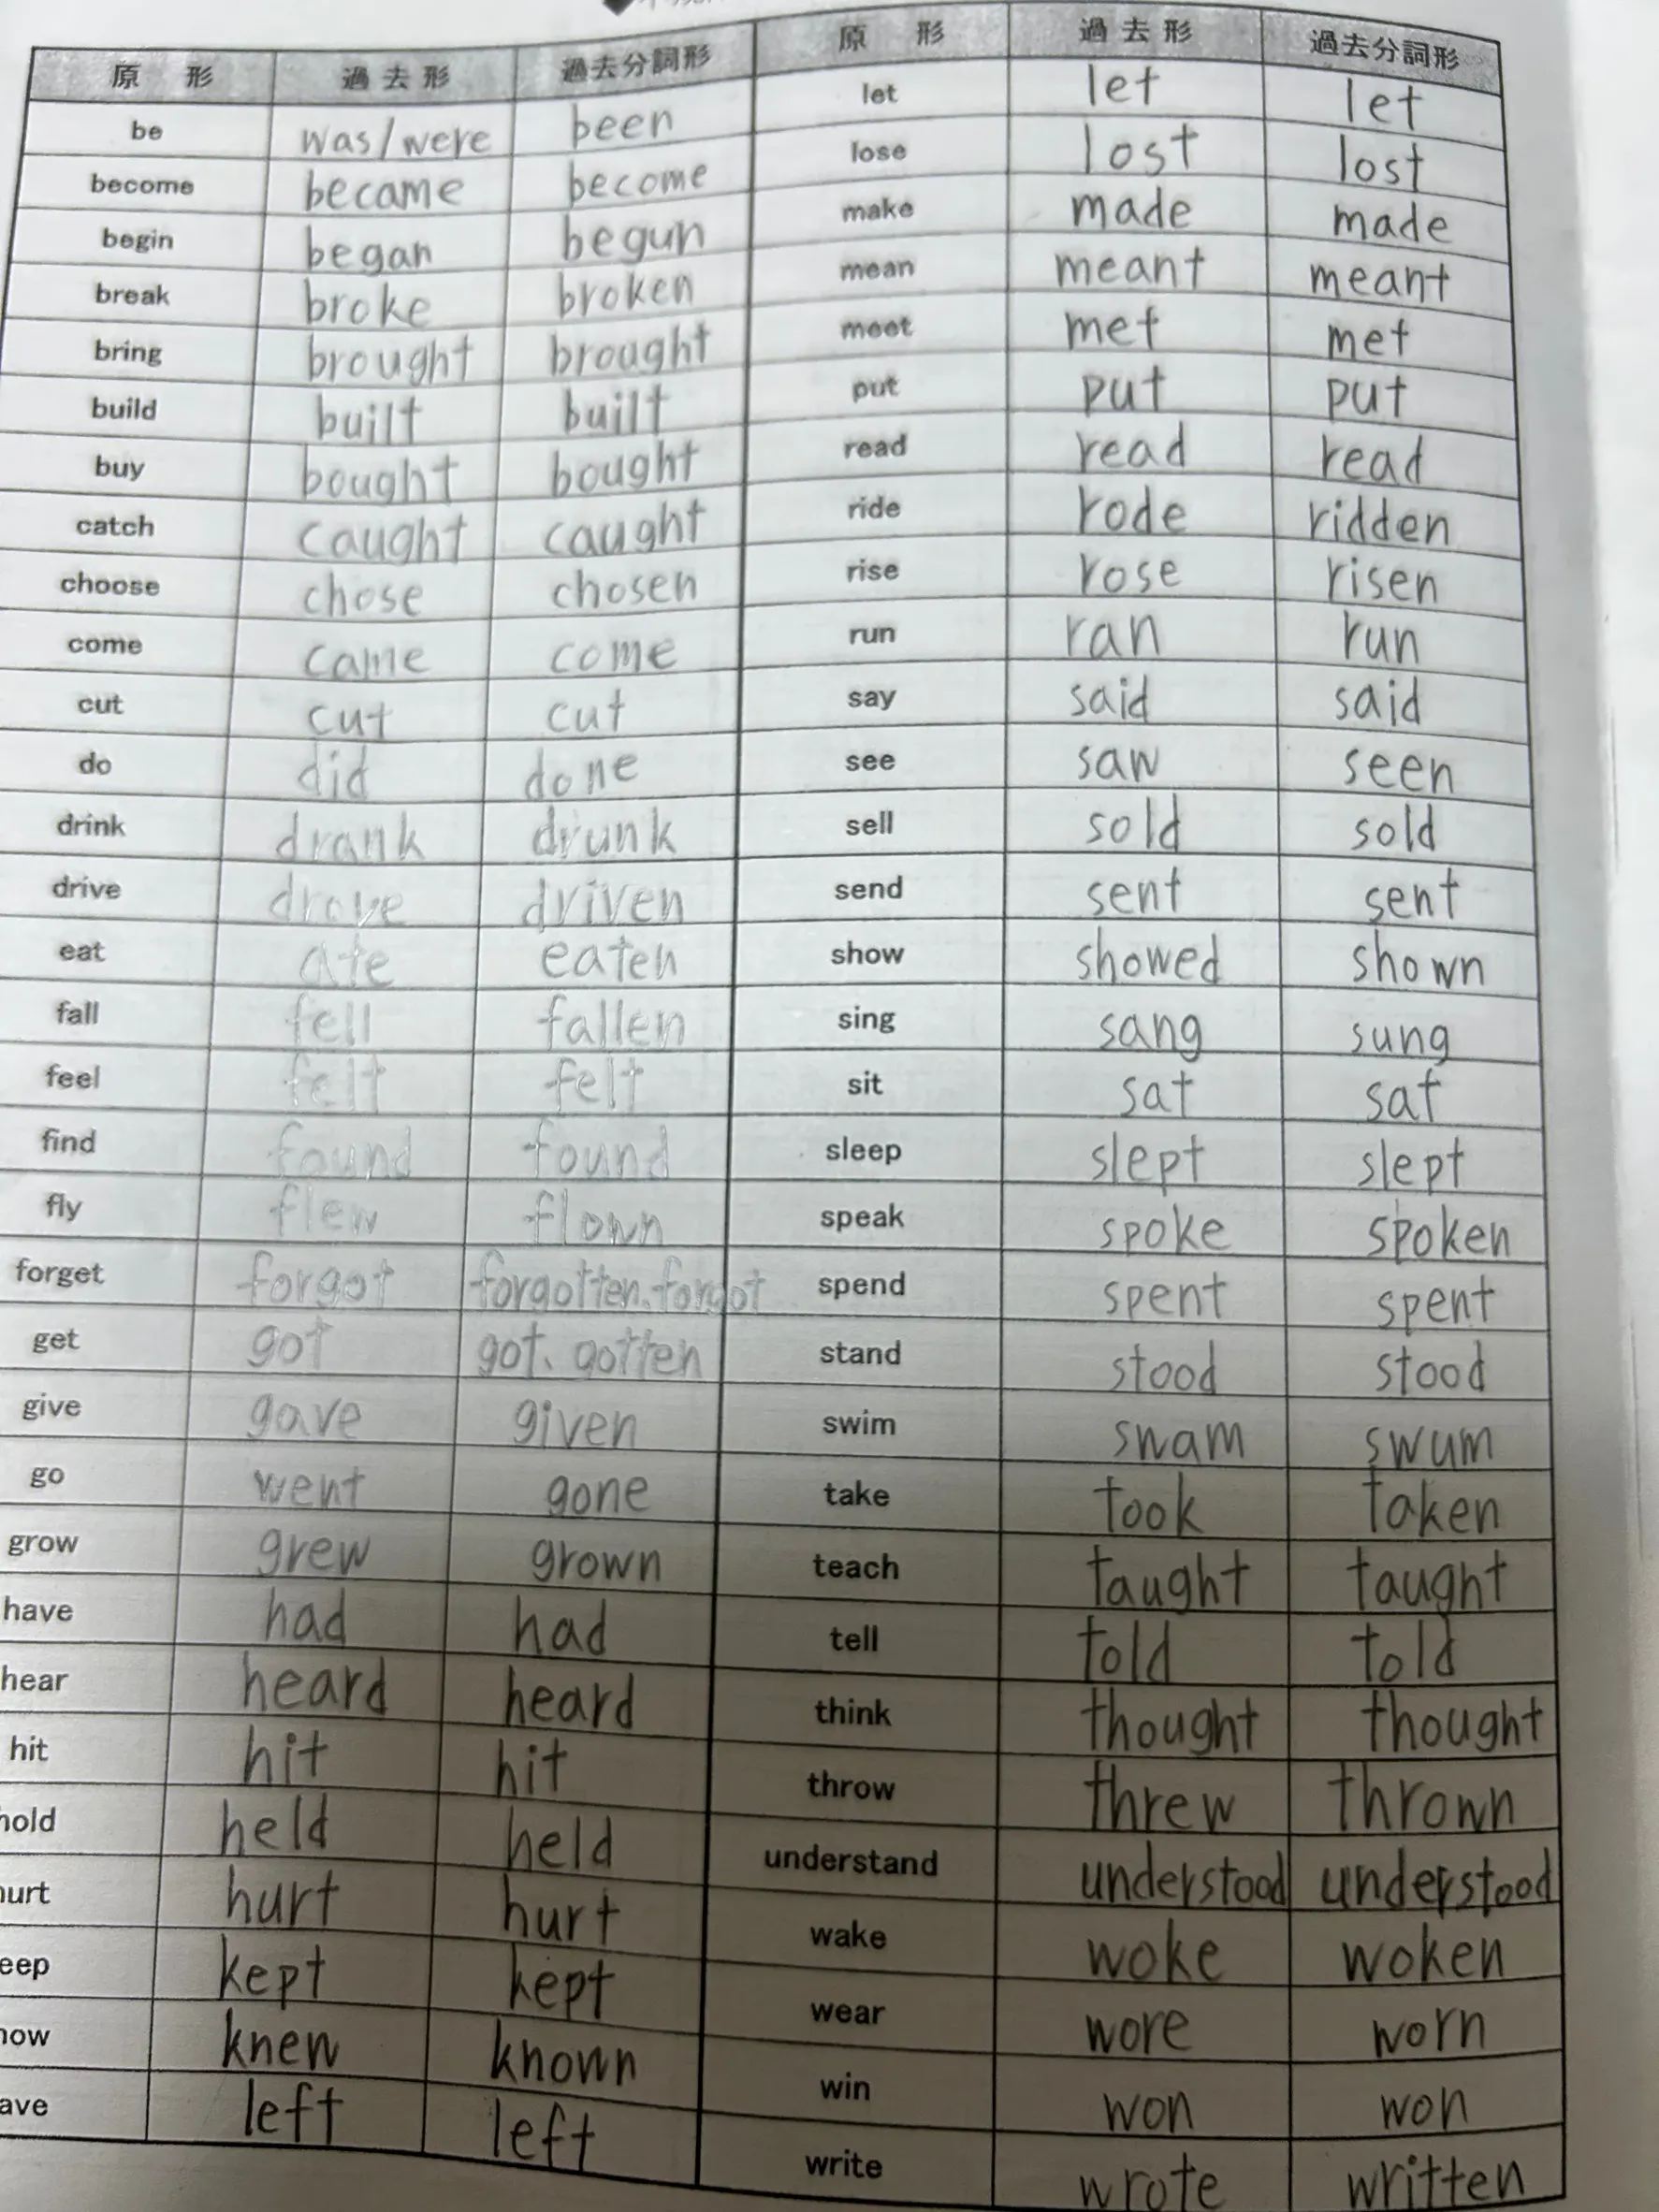 原形 過去形 過去分詞形
be was/were been
become became become
begin began begun
break broke broken
bring brought brought
build built built
buy bought bought
catch caught caught
choose chose chosen
come came come
cut cut cut
do did done
drink drank drunk
drive drove driven
eat ate eaten
fall fell fallen
feel felt felt
find found found
fly flew flown
forget forgot forgotten、forgot
get got got、gotten
give gave given
go went gone
grow grew grown
have had had
hear heard heard
hit hit hit
hold held held
urt hurt hurt
eep kept kept
now knew known
ave left left
原形 過去形 過去分詞形
let let let
lose lost lost
make made made
mean meant meant
meet met met
put put put
read read read
ride rode ridden
rise rose risen
run ran run
say said said
see saw seen
sell sold sold
send sent sent
show showed shown
sing sang sung
sit sat sat
sleep slept slept
speak spoke spoken
spend spent spent
stand stood stood
swim swam swum
take took taken
teach taught taught
tell told told
think thought thought
throw threw thrown
understand understood understood
wake woke woken
wear wore worn
win won won
write wrote written